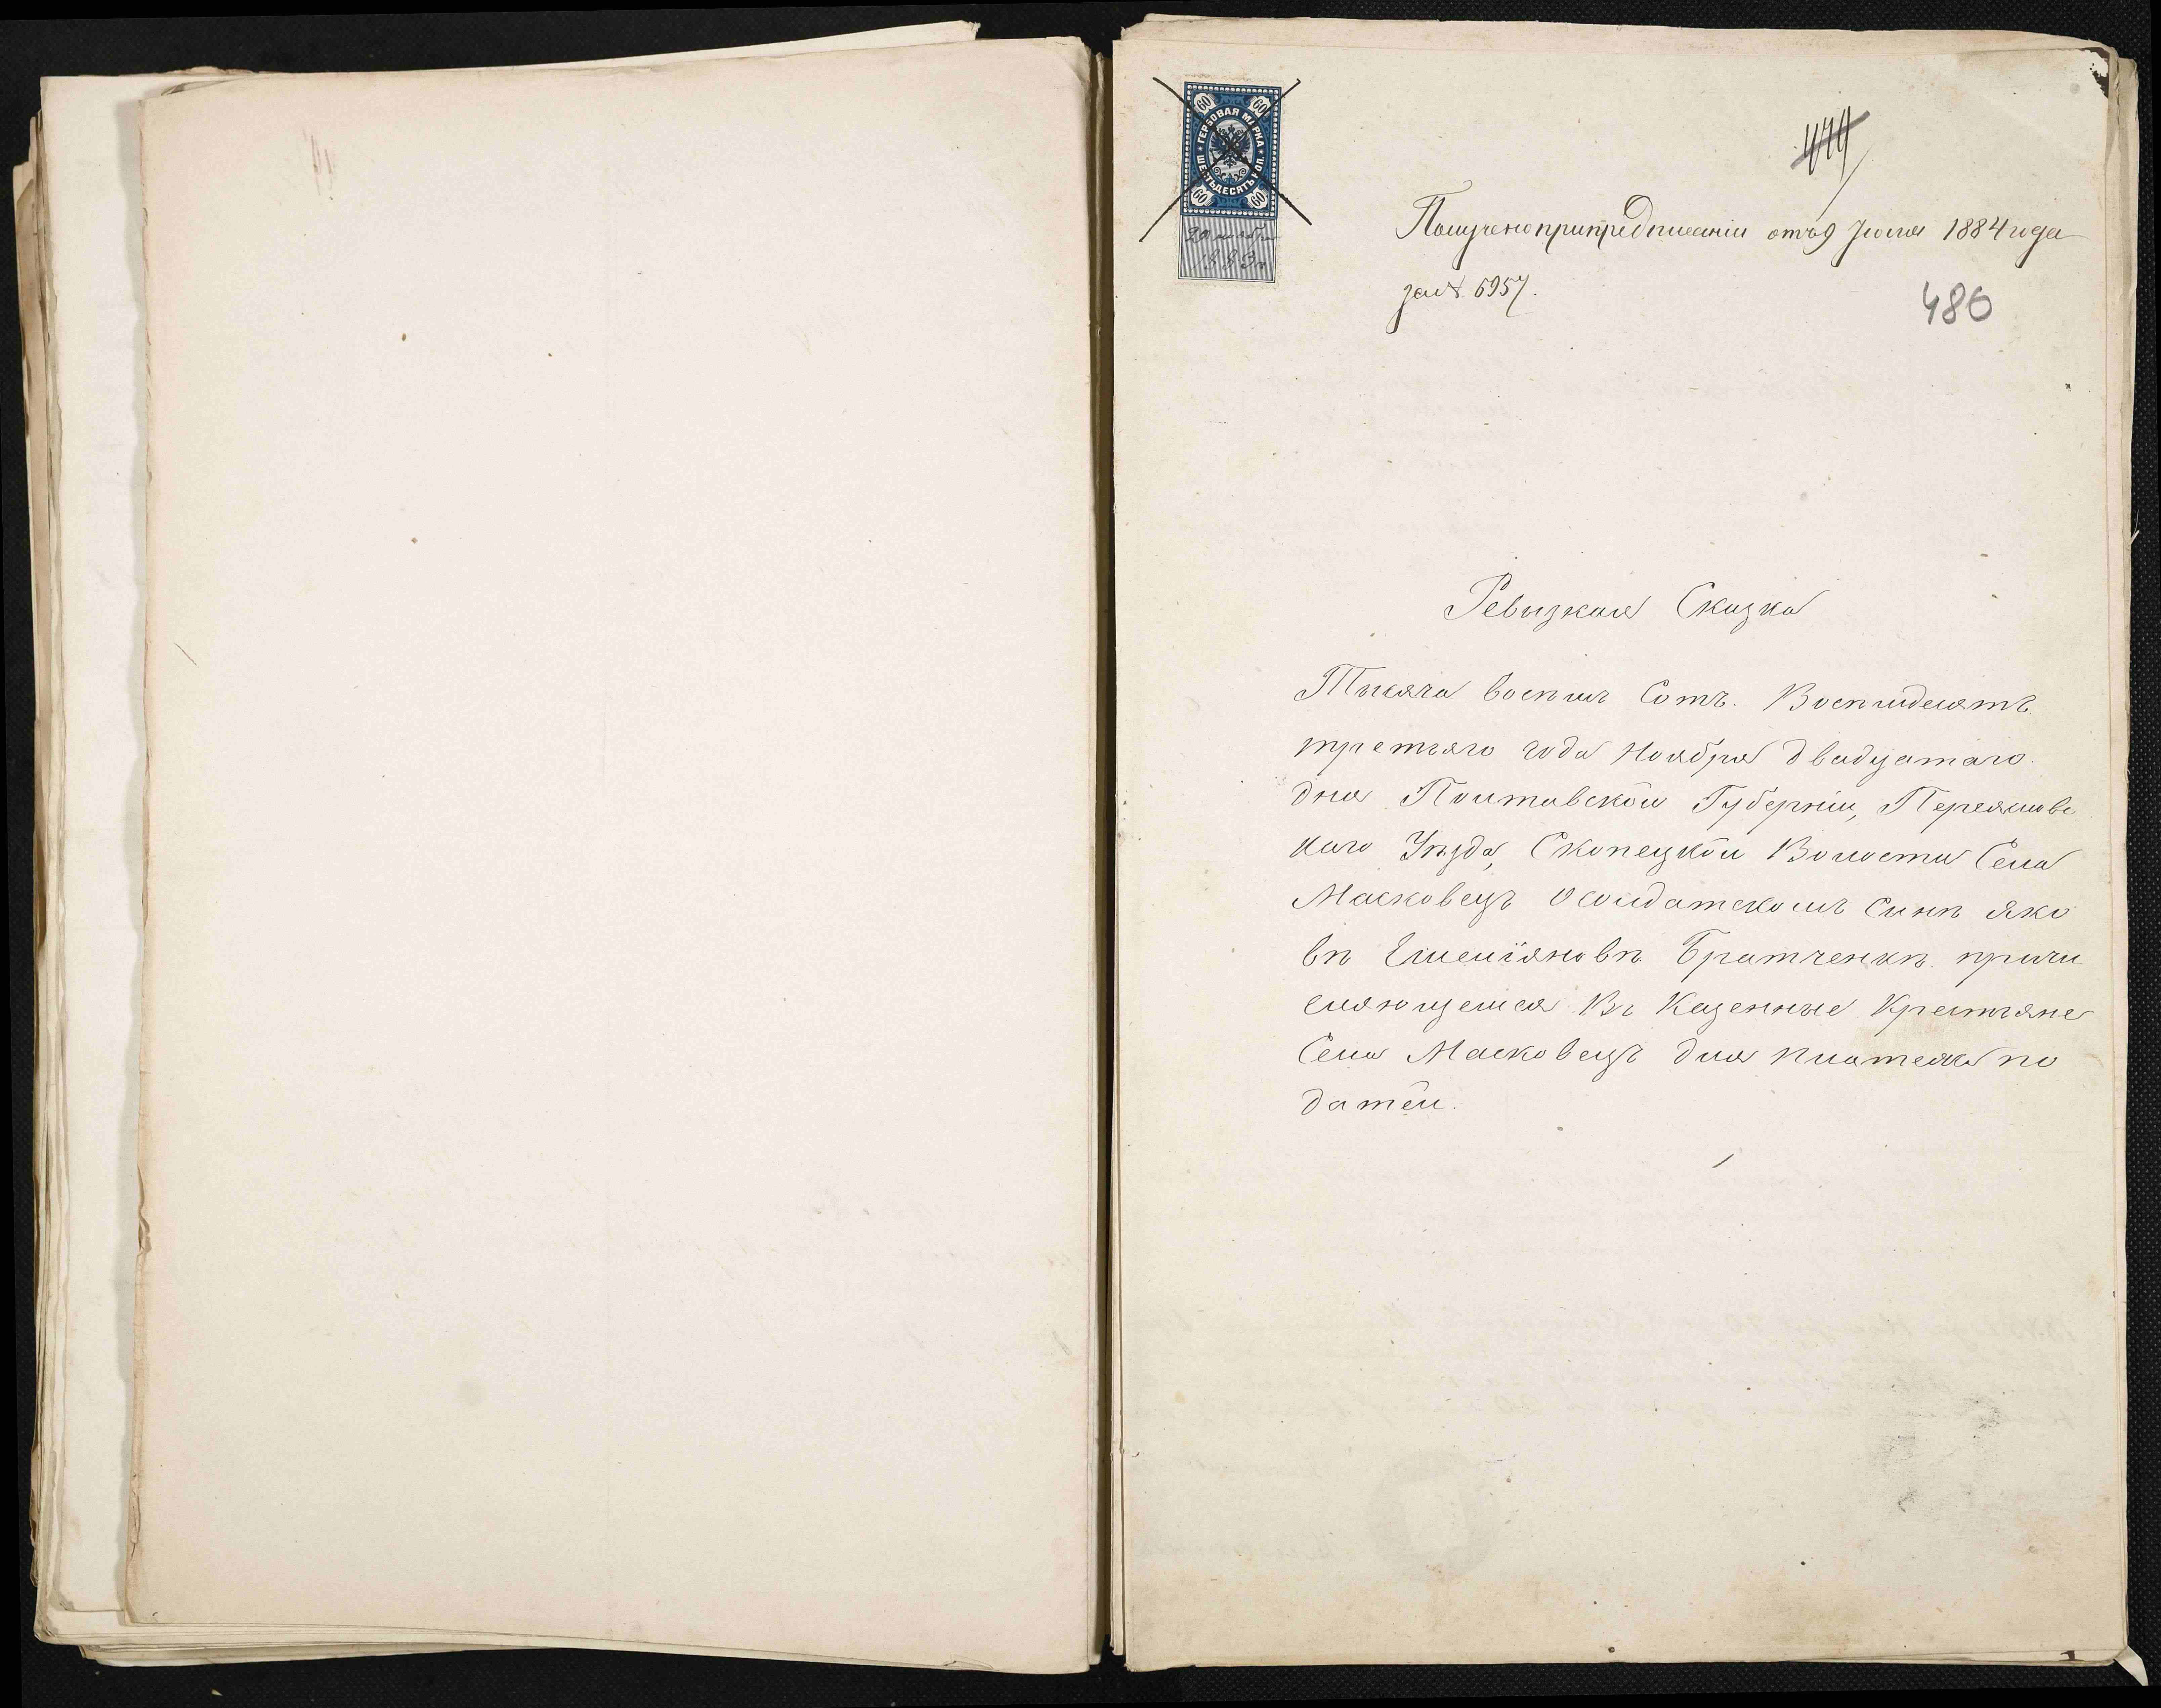 60 60
ГЕРБОВАЯ МАРКА
ШЕСТЬДЕСЯТЪ КОП.
60 60
20 ноября
1883 г
479
Получено при предписаніи отъ 9 Іюля 1884 года
за №. 5957.
486
Ревизкая Сказка
Тысяча восемъ Сотъ. Восемдесятъ
третьяго года Ноября двадцатаго
дня Полтавской Губерніи, Переяславс
каго Уѣзда, Скопецкой Волости Села
Масковецъ о солдатскомъ Сынѣ Яко
вѣ Емеліяновѣ Братченкѣ причи
сляющемся Въ Казенные Крестьяне
Села Масковецъ для платежа по
датей.